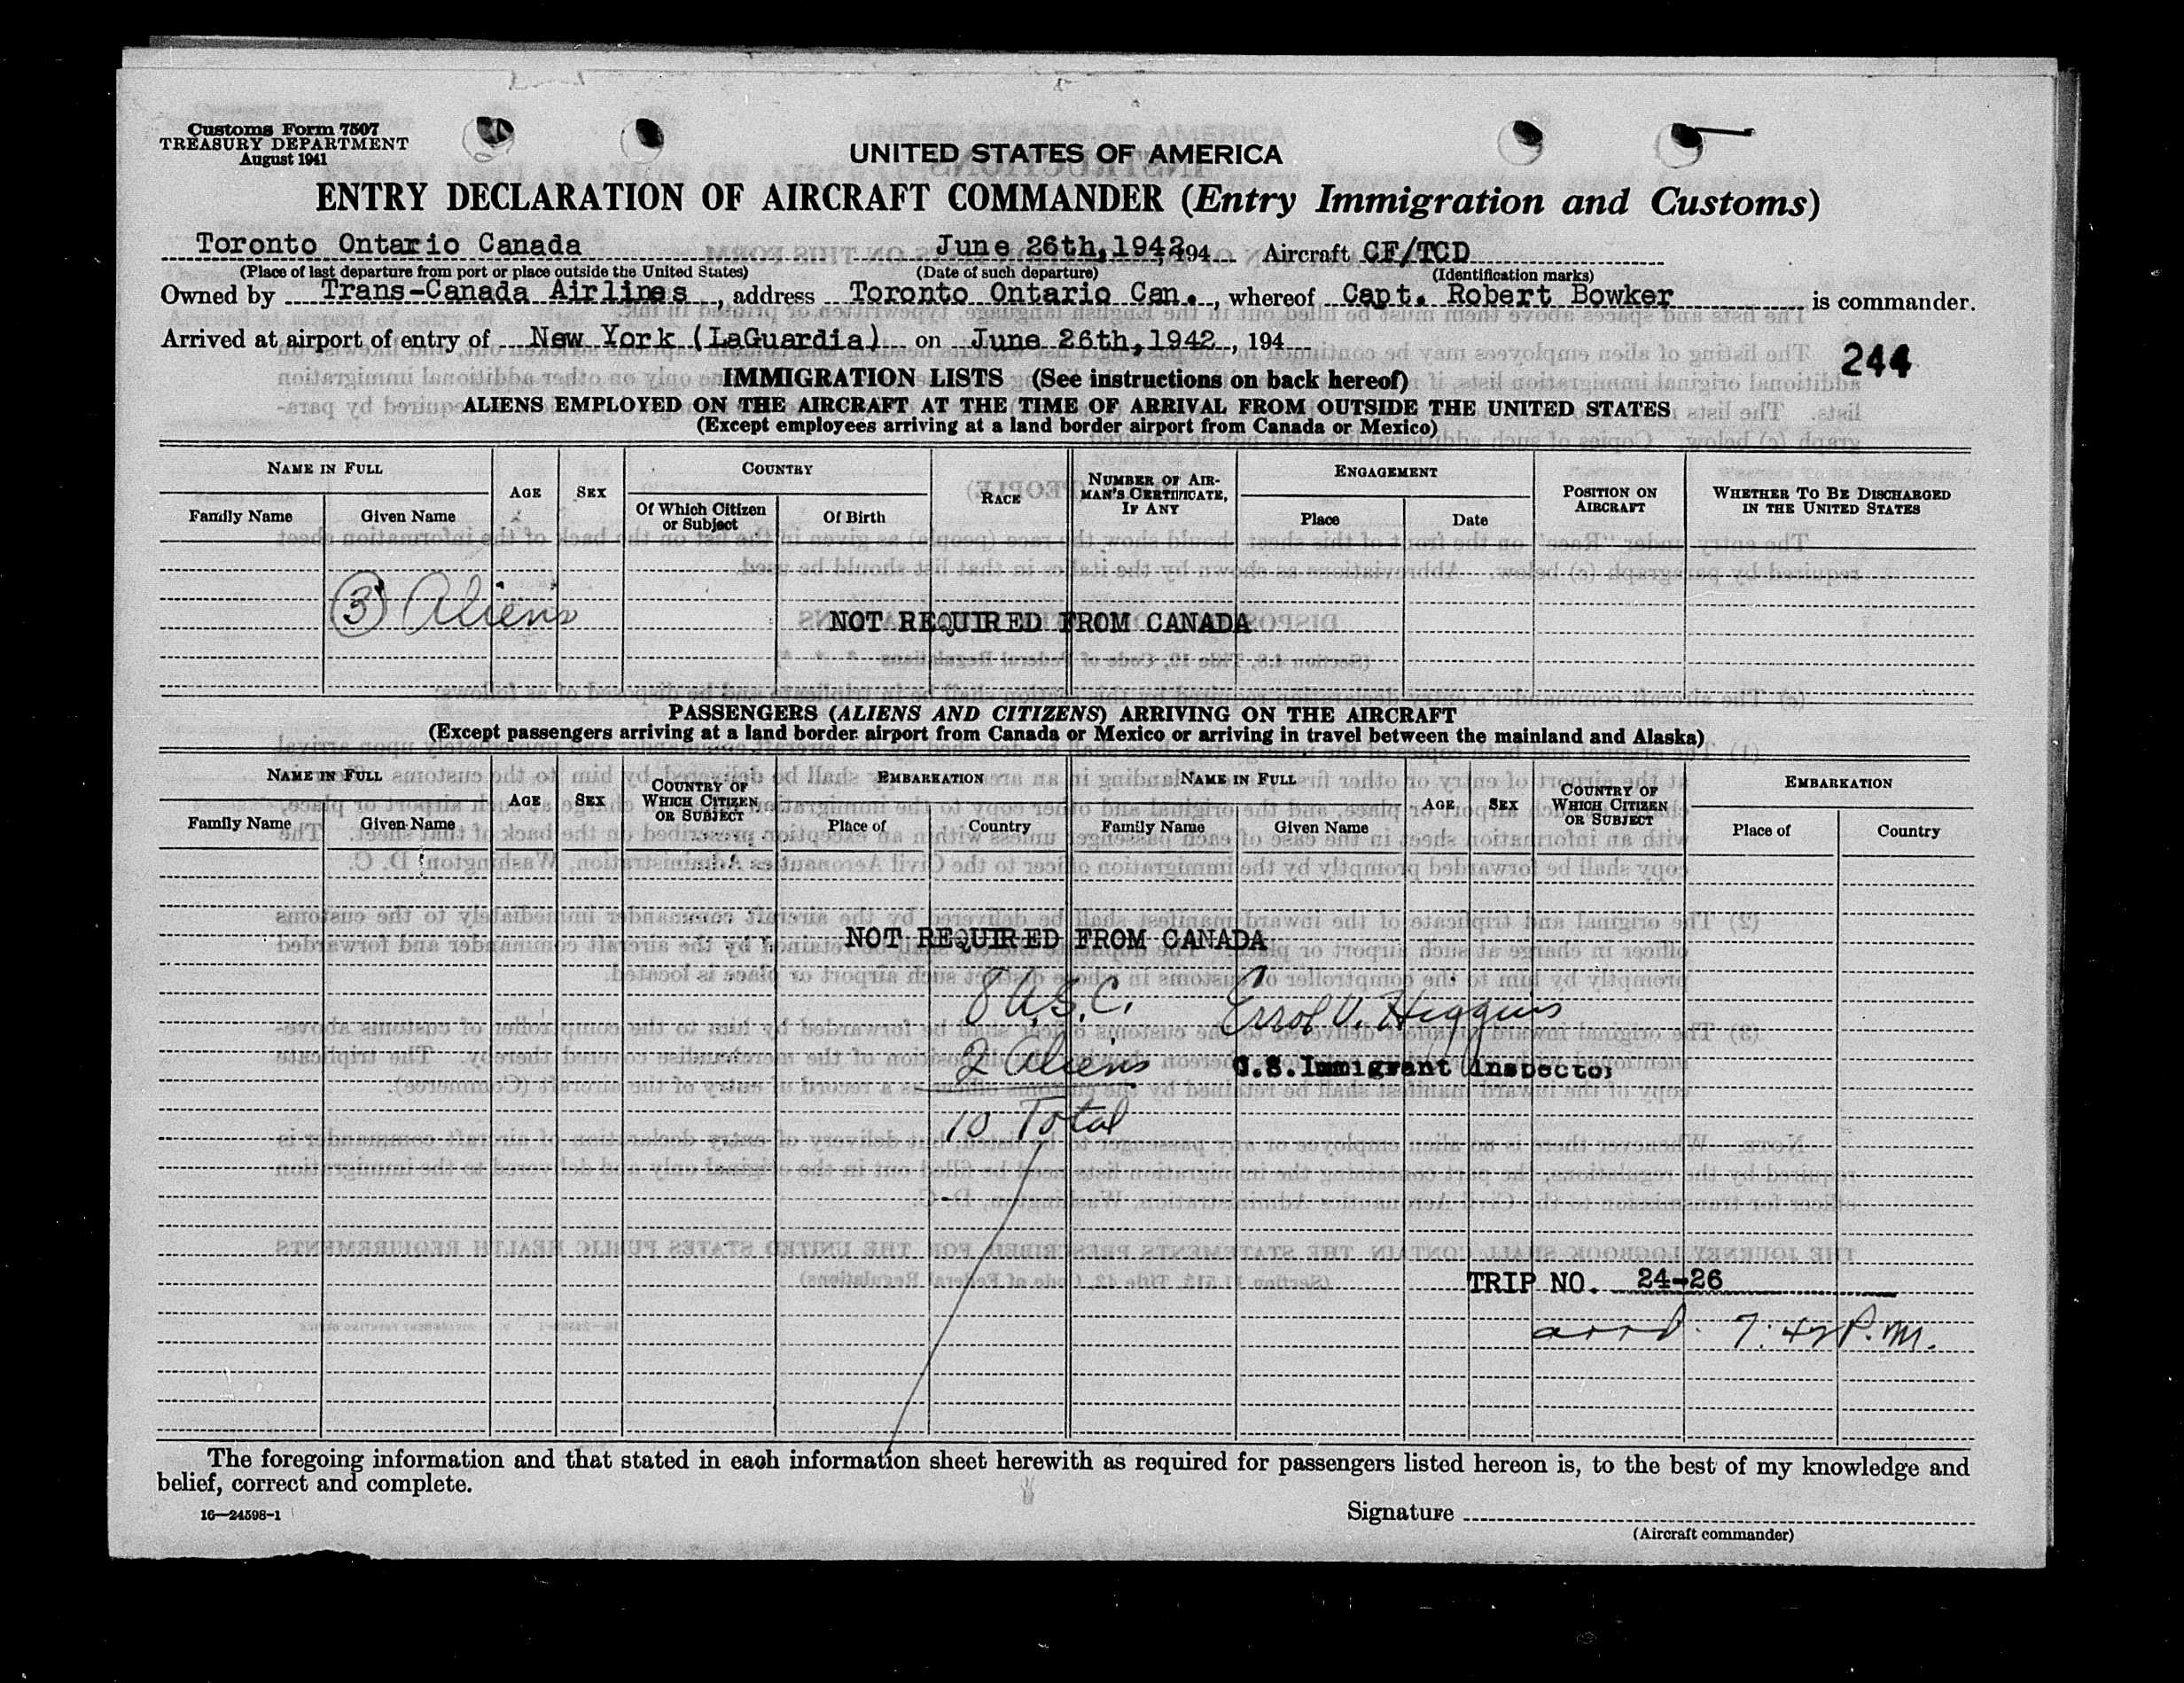 Customs Form 7507
TREASURY DEPARTMENT
August 1941
UNITED STATES OF AMERICA
ENTRY DECLARATION OF AIRCRAFT COMMANDER (Entry Immigration and Customs)
Toronto Ontario Canada June 26th, 1942, 194 Aircraft CF/TCD
(Place of last departure from port or place outside the United States) (Date of such departure) (Identification marks)
Owned by Trans-Canada Airlines, address Toronto Ontario Can., whereof Capt. Robert Bowker is commander.
Arrived at airport of entry of New York (LaGuardia) on June 26th, 1942, 194
244
IMMIGRATION LISTS (See instructions on back hereof)
ALIENS EMPLOYED ON THE AIRCRAFT AT THE TIME OF ARRIVAL FROM OUTSIDE THE UNITED STATES
(Except employees arriving at a land border airport from Canada or Mexico)
NAME IN FULL AGE SEX COUNTRY RACE NUMBER OF AIRMAN'S CERTIFICATE, IF ANY ENGAGEMENT POSITION ON AIRCRAFT WHETHER TO BE DISCHARGED IN THE UNITED STATES
Family Name Given Name Of Which Citizen or Subject Of Birth Place Date
3 Aliens
NOT REQUIRED FROM CANADA
PASSENGERS (ALIENS AND CITIZENS) ARRIVING ON THE AIRCRAFT
(Except passengers arriving at a land border airport from Canada or Mexico or arriving in travel between the mainland and Alaska)
NAME IN FULL AGE SEX COUNTRY OF WHICH CITIZEN OR SUBJECT EMBARKATION NAME IN FULL AGE SEX COUNTRY OF WHICH CITIZEN OR SUBJECT EMBARKATION
Family Name Given Name Place of Country Family Name Given Name Place of Country
NOT REQUIRED FROM CANADA
8 U.S.C. Errol V. Higgins
2 Aliens U.S. Immigrant Inspector
10 Total
TRIP NO. 24-26
arrd. 7:42 P.M.
The foregoing information and that stated in each information sheet herewith as required for passengers listed hereon is, to the best of my knowledge and
belief, correct and complete.
16—24598-1
Signature
(Aircraft commander)